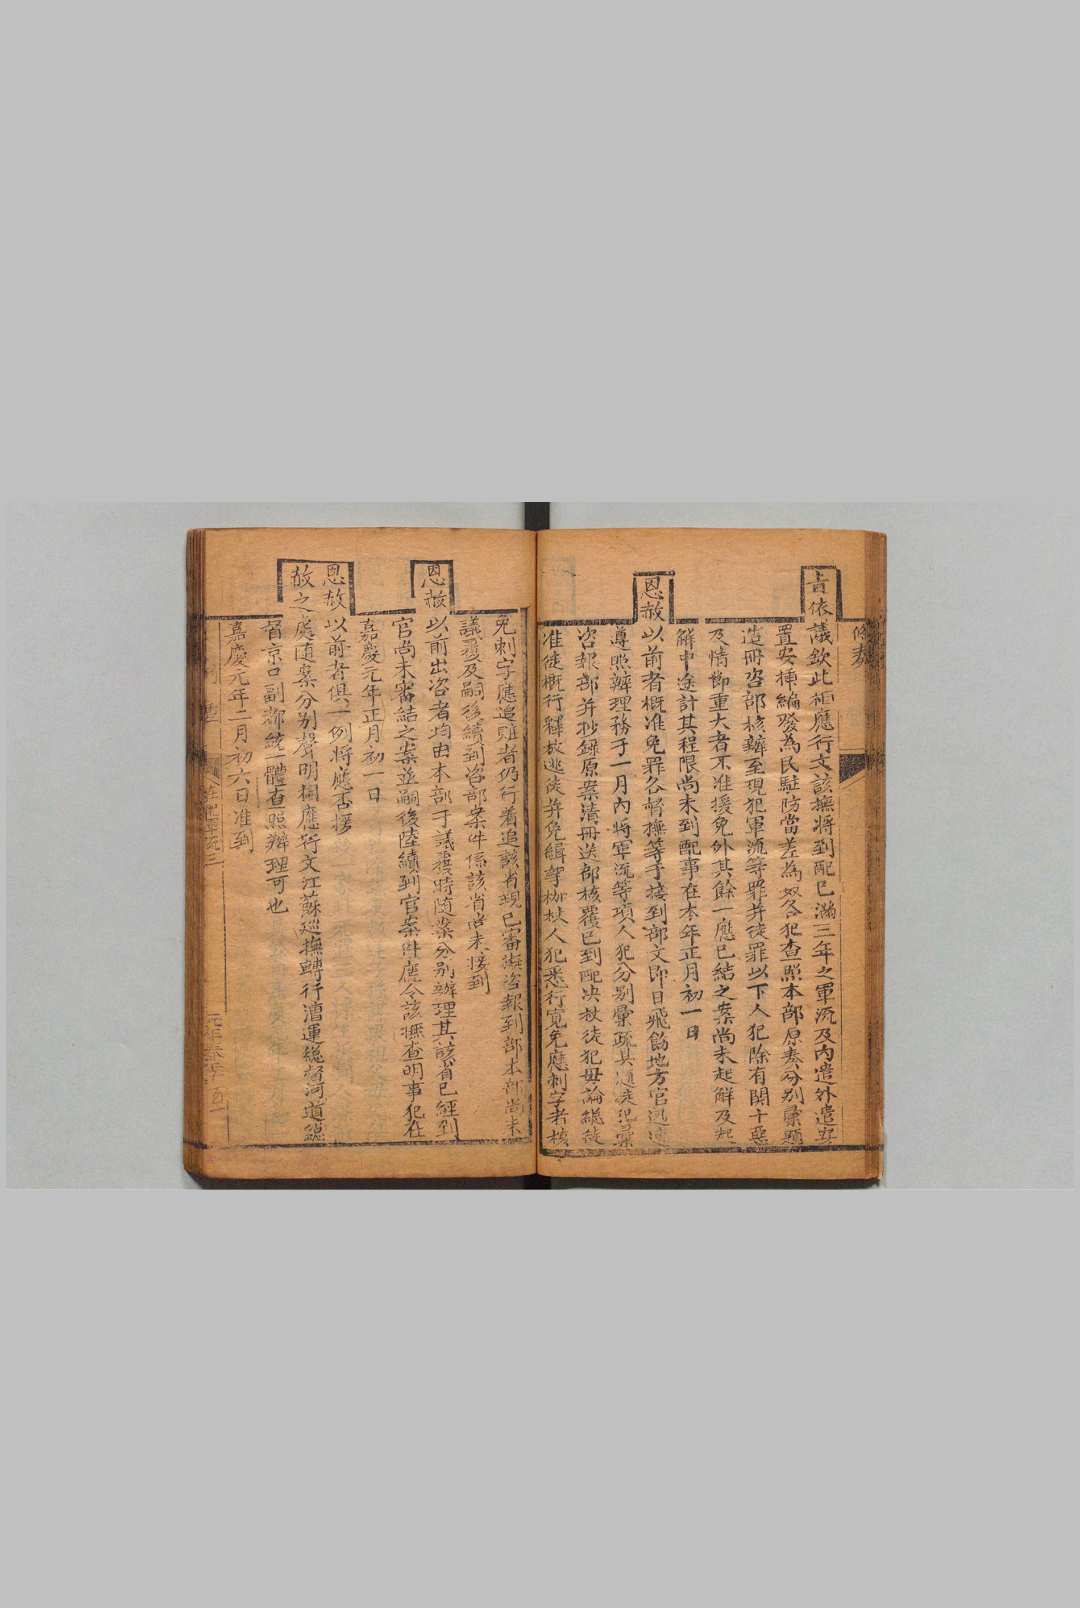 條奏
旨依議欽此相應行文該撫將到配已滿三年之軍流及內遣外遣安
置安揷編發為民駐防當差為奴各犯查照本部原奏分別彙題
造冊咨部核辦至現犯軍流等罪并徒罪以下人犯除有関十惡
及情節重大者不准援免外其餘一應已結之案尚未起解及起
解中途計其程限尚未到配事在本年正月初一日
恩赦以前者概准免罪各督撫等于接到部文即日飛飭地方官迅速
遵照辦理務于一月內將軍流等項人犯分別彙疏具題徒犯彙
咨報部并抄錄原案清冊送部核覆已到配决杖徒犯毋論總徒
准徒概行釋放逃徒并免緝拏枷杖人犯悉行寬免應刺字者核
免刺字應追贓者仍行着追該省現已審擬咨報到部本部尚未
議覆及嗣後續到咨部案件係該省尚未接到
恩赦以前出咨者均由本部于議覆時隨案分別辦理其該省已經到
官尚未審結之案並嗣後陸續到官案件應令該撫查明事犯在
嘉慶元年正月初一日
恩赦以前者俱一例將應否援
赦之處隨案分别聲明相應行文江蘇巡撫轉行漕運總督河道總
督京口副都統一體查照辦理可也
嘉慶元年二月初六日准到